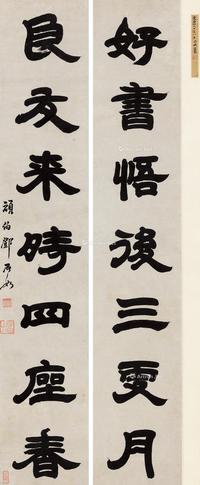 好書悟後三更月
良友来時四座春
頑伯鄧石如